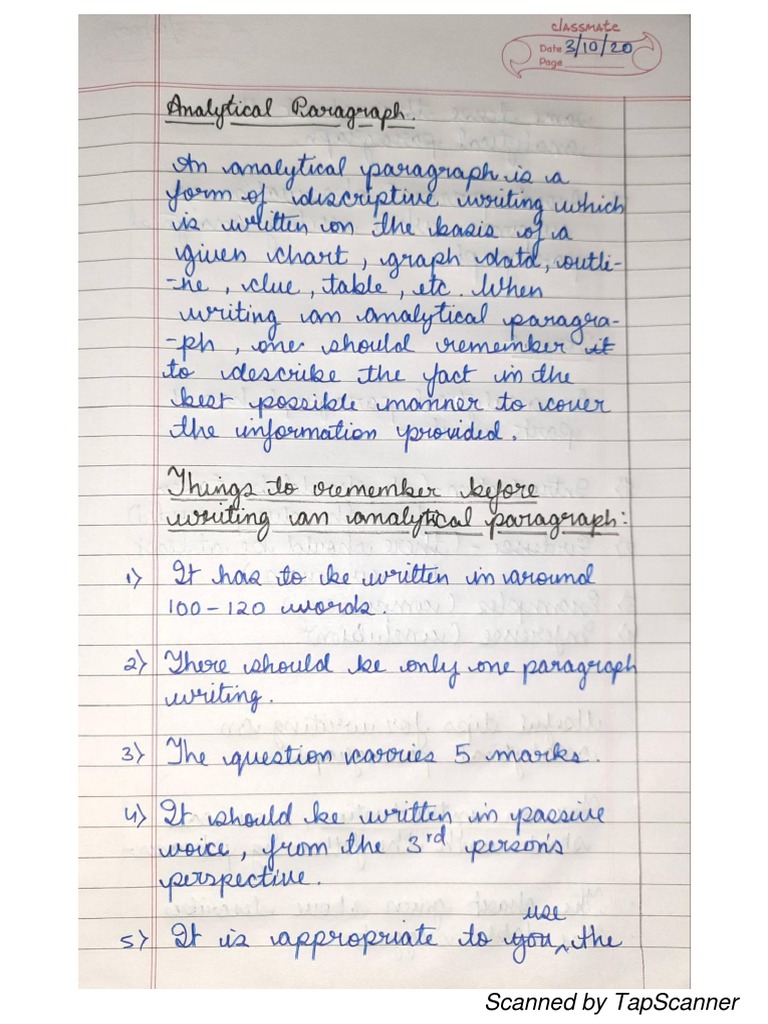 classmate
Date 3/10/20
Page
Analytical Paragraph.
An analytical paragraph is a
form of descriptive writing which
is written on the basis of a
given chart, graph data, outli-
-ne, clue, table, etc. When
writing an analytical paragra-
-ph, one should remember it
to describe the fact in the
best possible manner to cover
the information provided.
Things to remember before
writing an analytical paragraph:
1) It has to be written in around
100-120 words.
2) There should be only one paragraph
writing.
3) The question carries 5 marks.
4) It should be written in passive
voice, from the 3rd person's
perspective.
use
5) It is appropriate to you, the
Scanned by TapScanner